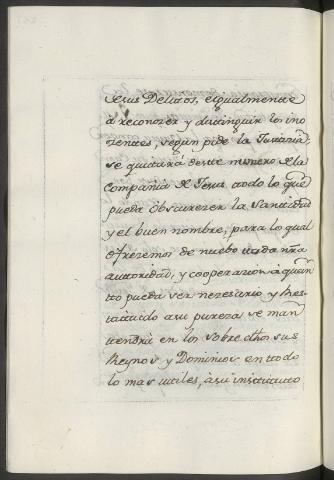 de sus Delitos, e igualmente
à reconozer y distinguir los ino
zentes, segun pide la Justizia;
se quitará deste numero de la
Compañia de Jesus todo lo que
pueda obscurezer la Santidad
y el buen nombre, para lo qual
ofrezemos de nuebo toda nrã
autoridad, y cooperazion à quan
tto pueda ser nezesario y Res-
tatuido a su pureza se man
tendrá en los sobre dhos sus
Reynos y Dominios en ttodo
lo mas utiles, à su instituto